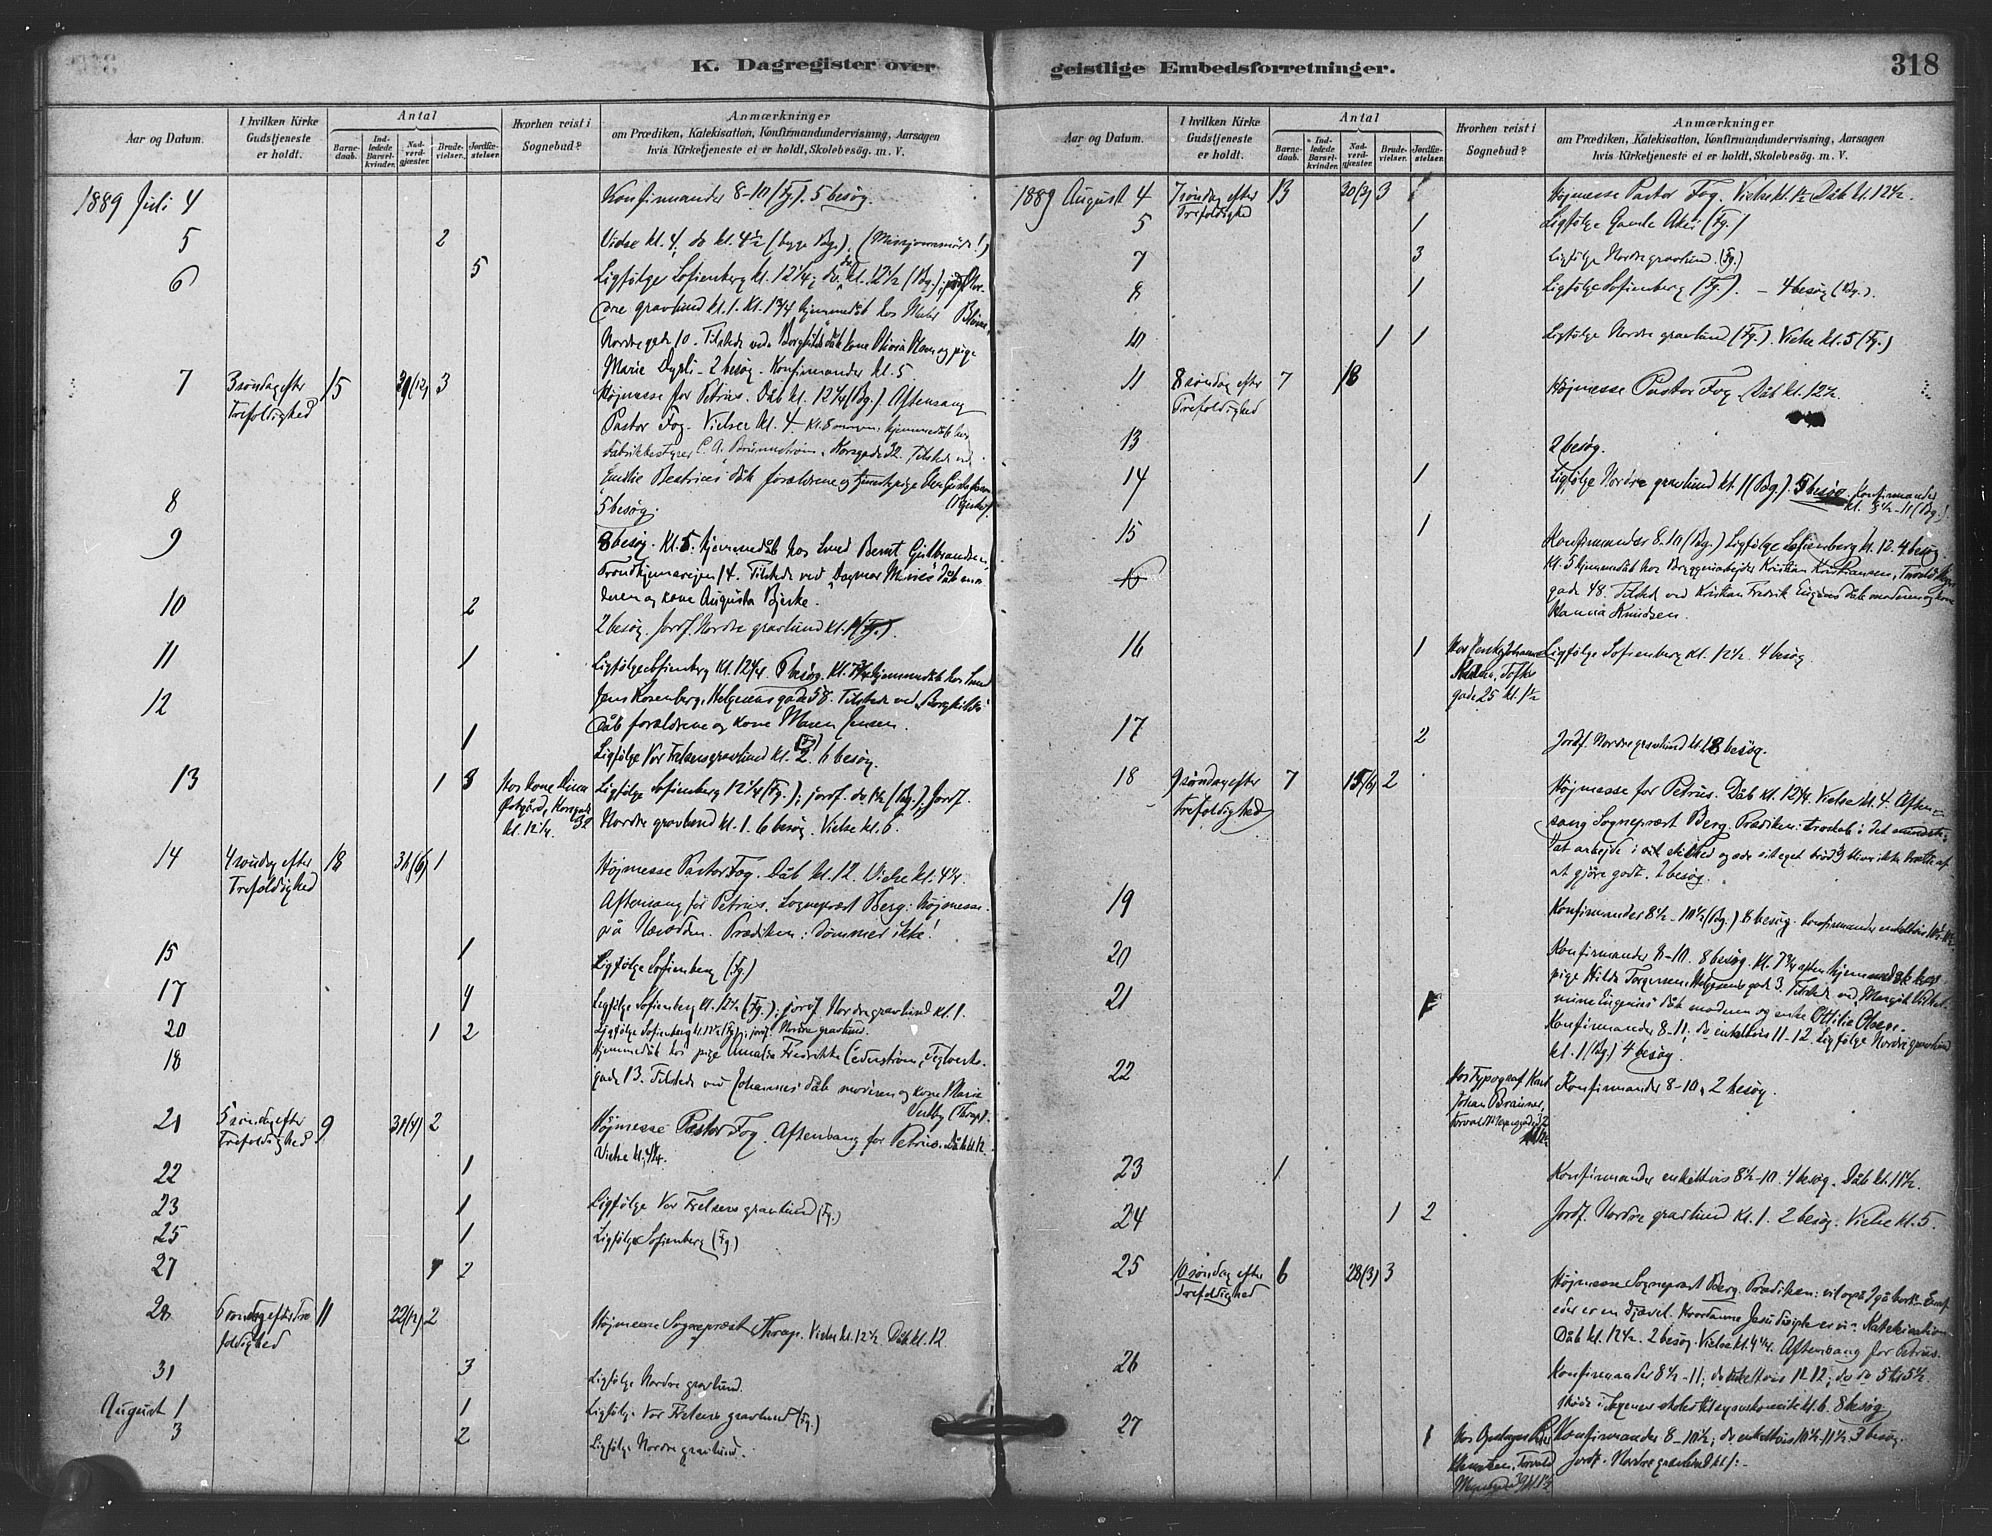 K. Dagregister over
geistlige Embedsforretninger.
318
Aar og Datum.
I hvilken Kirke
Gudstjeneste
er holdt.
Antal
Barne-
daab.
Ind-
ledede
Barsel-
kvinder.
Nad-
verd-
gjæster.
Brude-
vielser.
Jordfæ-
stelser.
Hvorhen reist i
Sognebud?
Anmærkninger
om Prædiken, Katekisation, Konfirmandundervisning, Aarsagen
hvis Kirketjeneste ei er holdt, Skolebesög. m. V.
1889 Juli 4
Konfirmander 8-10 (Fg). 5 besøg.
5
2
Vielse kl. 4, do kl. 4½ (begge Bg.). (Missionsmøde!)
6
5
Ligfølge Sofienberg kl. 12¼; do kl. 12½ (Bg.);
dre gravlund kl. 1. Kl. 1¾ hjemmedåb hos
Nordregade 10. Tilstede ved Borghilds dåb kone Olivia Olsen og pige
Marie Dysti - 2 besøg - Konfirmander kl. 5
7
3 søndag efter
Trefoldighed
15
39(12)
3
Højmesse for Petrus. Dåb kl. 12¼ (Bg.) Aftensang
Pastor Fog. Vielser kl. 4 - kl. 8 hjemmedåb hos
Fabrikbestyrer C. A. Korsgade 32. Tilstede ved
Emilie Beatrices dåb forældrene og
8
5 besøg.
9
8 besøg. Kl. 5. hjemmedåb hos Smed Bernt Gulbrandsen,
Trondhjemsvejen 14. Tilstede ved Dagmar Maries dåb mo-
deren og kone Augusta Bjerke.
10
2
2 besøg. Jordf. Nordre gravlund kl. 1 (Fg.).
11
1
Ligfølge Sofienberg kl. 12¼. besøg. Kl. hjemmedåb hos Smed
Jens Rosenberg, Helgesens gade 58. Tilstede ved Borghilds
Dåb forældrene og kone Maren Jensen.
12
1
Ligfølge Vor Frelsers gravlund kl. 2 (Fg). 6 besøg.
13
1
3
Hos kone
Østgård, Korsgade
kl. 12¼. 32
Ligfølge Sofienberg 12¼ (Fg.); jordf. do 1½ (Bg.); Jordf.
Nordre gravlund kl. 1. 6 besøg. Vielse kl. 6.
14
4 søndag efter
Trefoldighed
18
36(6)
1
Højmesse Pastor Fog. Dåb kl. 12. Vielse kl. 4¼.
Aftensang for Petrus. Sognepræst Berg: Højmesse
på Nesodden. Prædiken: Dømmer ikke!
15
1
Ligfølge Sofienberg (Fg.)
17
4
Ligfølge Sofienberg kl. 12½ (Fg.); jordf. Nordre gravlund kl. 1.
20
1
2
Ligfølge Sofienberg kl. 12½ (Fg); jordf. Nordre gravlund.
18
Hjemmedåb hos pige Amalia Fredrikke Cederstrøm, Teglverks-
gade 13. Tilstede ved Johannes' dåb moderen og kone Marie
(Thrap).
21
5 søndag efter
Trefoldighed
9
31(4)
2
Højmesse Pastor Fog. Aftensang for Petrus. Dåb kl. 12
Vielse kl. 4¼.
22
1
23
1
Ligfølge Vor Frelsers gravlund (Fg.)
25
1
Ligfølge Sofienberg (Fg)
27
2
28
6 søndag efter Tre-
foldighed
11
22(12)
2
Højmesse Sognepræst Thrap. Vielse kl. 12½ Dåb kl. 12
31
3
Ligfølge Nordre gravlund.
August 1
1
Ligfølge Vor Frelsers gravlund (Fg.)
3
2
Ligfølge Nordre gravlund.
Aar og Datum.
I hvilken Kirke
Gudstjeneste
er holdt.
Antal
Barne-
daab.
Ind-
ledede
Barsel-
kvinder.
Nad-
verd-
gjæster.
Brude-
vielser.
Jordfæ-
stelser.
Hvorhen reist i
Sognebud?
Anmærkninger
om Prædiken, Katekisation, Konfirmandundervisning, Aarsagen
hvis Kirketjeneste ei er holdt, Skolebesög. m. V.
1889 August 4
7 søndag efter
Trefoldighed
13
20(3)
3
1
Højmesse Pastor Fog. Vielse kl. 1½ Dåb kl. 12½.
5
1
Ligfølge Gamle Aker (Fg.)
7
3
Ligfølge Nordre gravlund. (Fg.)
8
1
Ligfølge Sofienberg (Fg.). - 4 besøg (Bg.).
10
1
1
Ligfølge Nordre gravlund (Fg.). Vielse kl. 5 (Fg.)
11
8 søndag efter
Trefoldighed
7
18
Højmesse Pastor Fog. Dåb kl. 12½.
13
2 besøg.
14
1
Ligfølge Nordre gravlund kl. 1 (Bg.). 5 besøg. Konfirmander
kl. 8½-11 (Bg.).
15
1
Konfirmander 8-10 (Bg.) Ligfølge Sofienberg kl. 12. 4 besøg.
Kl. 5 hjemmedåb hos Bryggeriarbejder Kristian Kristiansen, Torvald Meyers
gade 48. Tilstede ved Kristian Fredrik Eugens dåb moderen og kone
Hanna Knudsen.
16
1
gade 25 kl. 1½
Ligfølge Sofienberg kl. 12½. 4 besøg
17
2
Jordf. Nordre gravlund kl. 1. 8 besøg.
18
9 søndag efter
Trefoldighed
7
15(6)
2
Højmesse for Petrus. Dåb kl. 12¼. Vielse kl. 4. Aften-
sang Sognepræst Berg. Prædiken: troskab i det mindste:
at arbejde i stilhed og æde sit eget brød; bliv ikke trætte af
at gjøre godt. 2 besøg.
19
Konfirmander 8½-10½ (Bg.) 8 besøg. Konfirmander enkeltvis
20
Konfirmander 8-10. 8 besøg. Kl. 7¾ aften hjemmedåb hos
pige Hilda Torgersen, Helgesens gade 3. Tilstede ved Margit Vilhel-
mine Eugenies dåb moderen og enke Ottilie Olsen.
21
1
Konfirmander 8-11; do enkeltvis 11-12. Ligfølge Nordre gravlund
kl. 1 (Bg.) 4 besøg.
22
Hos Typograf Karl
Johan Brauner,
Torvald Meyersgade
Konfirmander 8-10. 2 besøg.
23
1
Konfirmander enkeltvis 8½-10. 4 besøg. Dåb kl. 11½.
24
1
2
Jordf. Nordre gravlund kl. 1. 2 besøg. Vielse kl. 5.
25
10 søndag efter
Trefoldighed
6
28(3)
3
Højmesse Sognepræst Berg. Prædiken: vil også I gå bort? En af
eder er en djævel. Hvordanne Jesu disciple er vi? Katekisation
Dåb kl. 12½. 2 besøg. Vielse kl. 4¼. Aftensang for Petrus.
26
Konfirmander 8½-11; do enkeltvis 11-12; do do 5 til 5½.
Møde i kl. 6. 8 besøg
27
1
Torvald
Meyersgade 39 kl. 1½
Konfirmander 8-10½; do enkeltvis 10½-11½. 3 besøg.
Jordf. Nordre gravlund kl. 1.